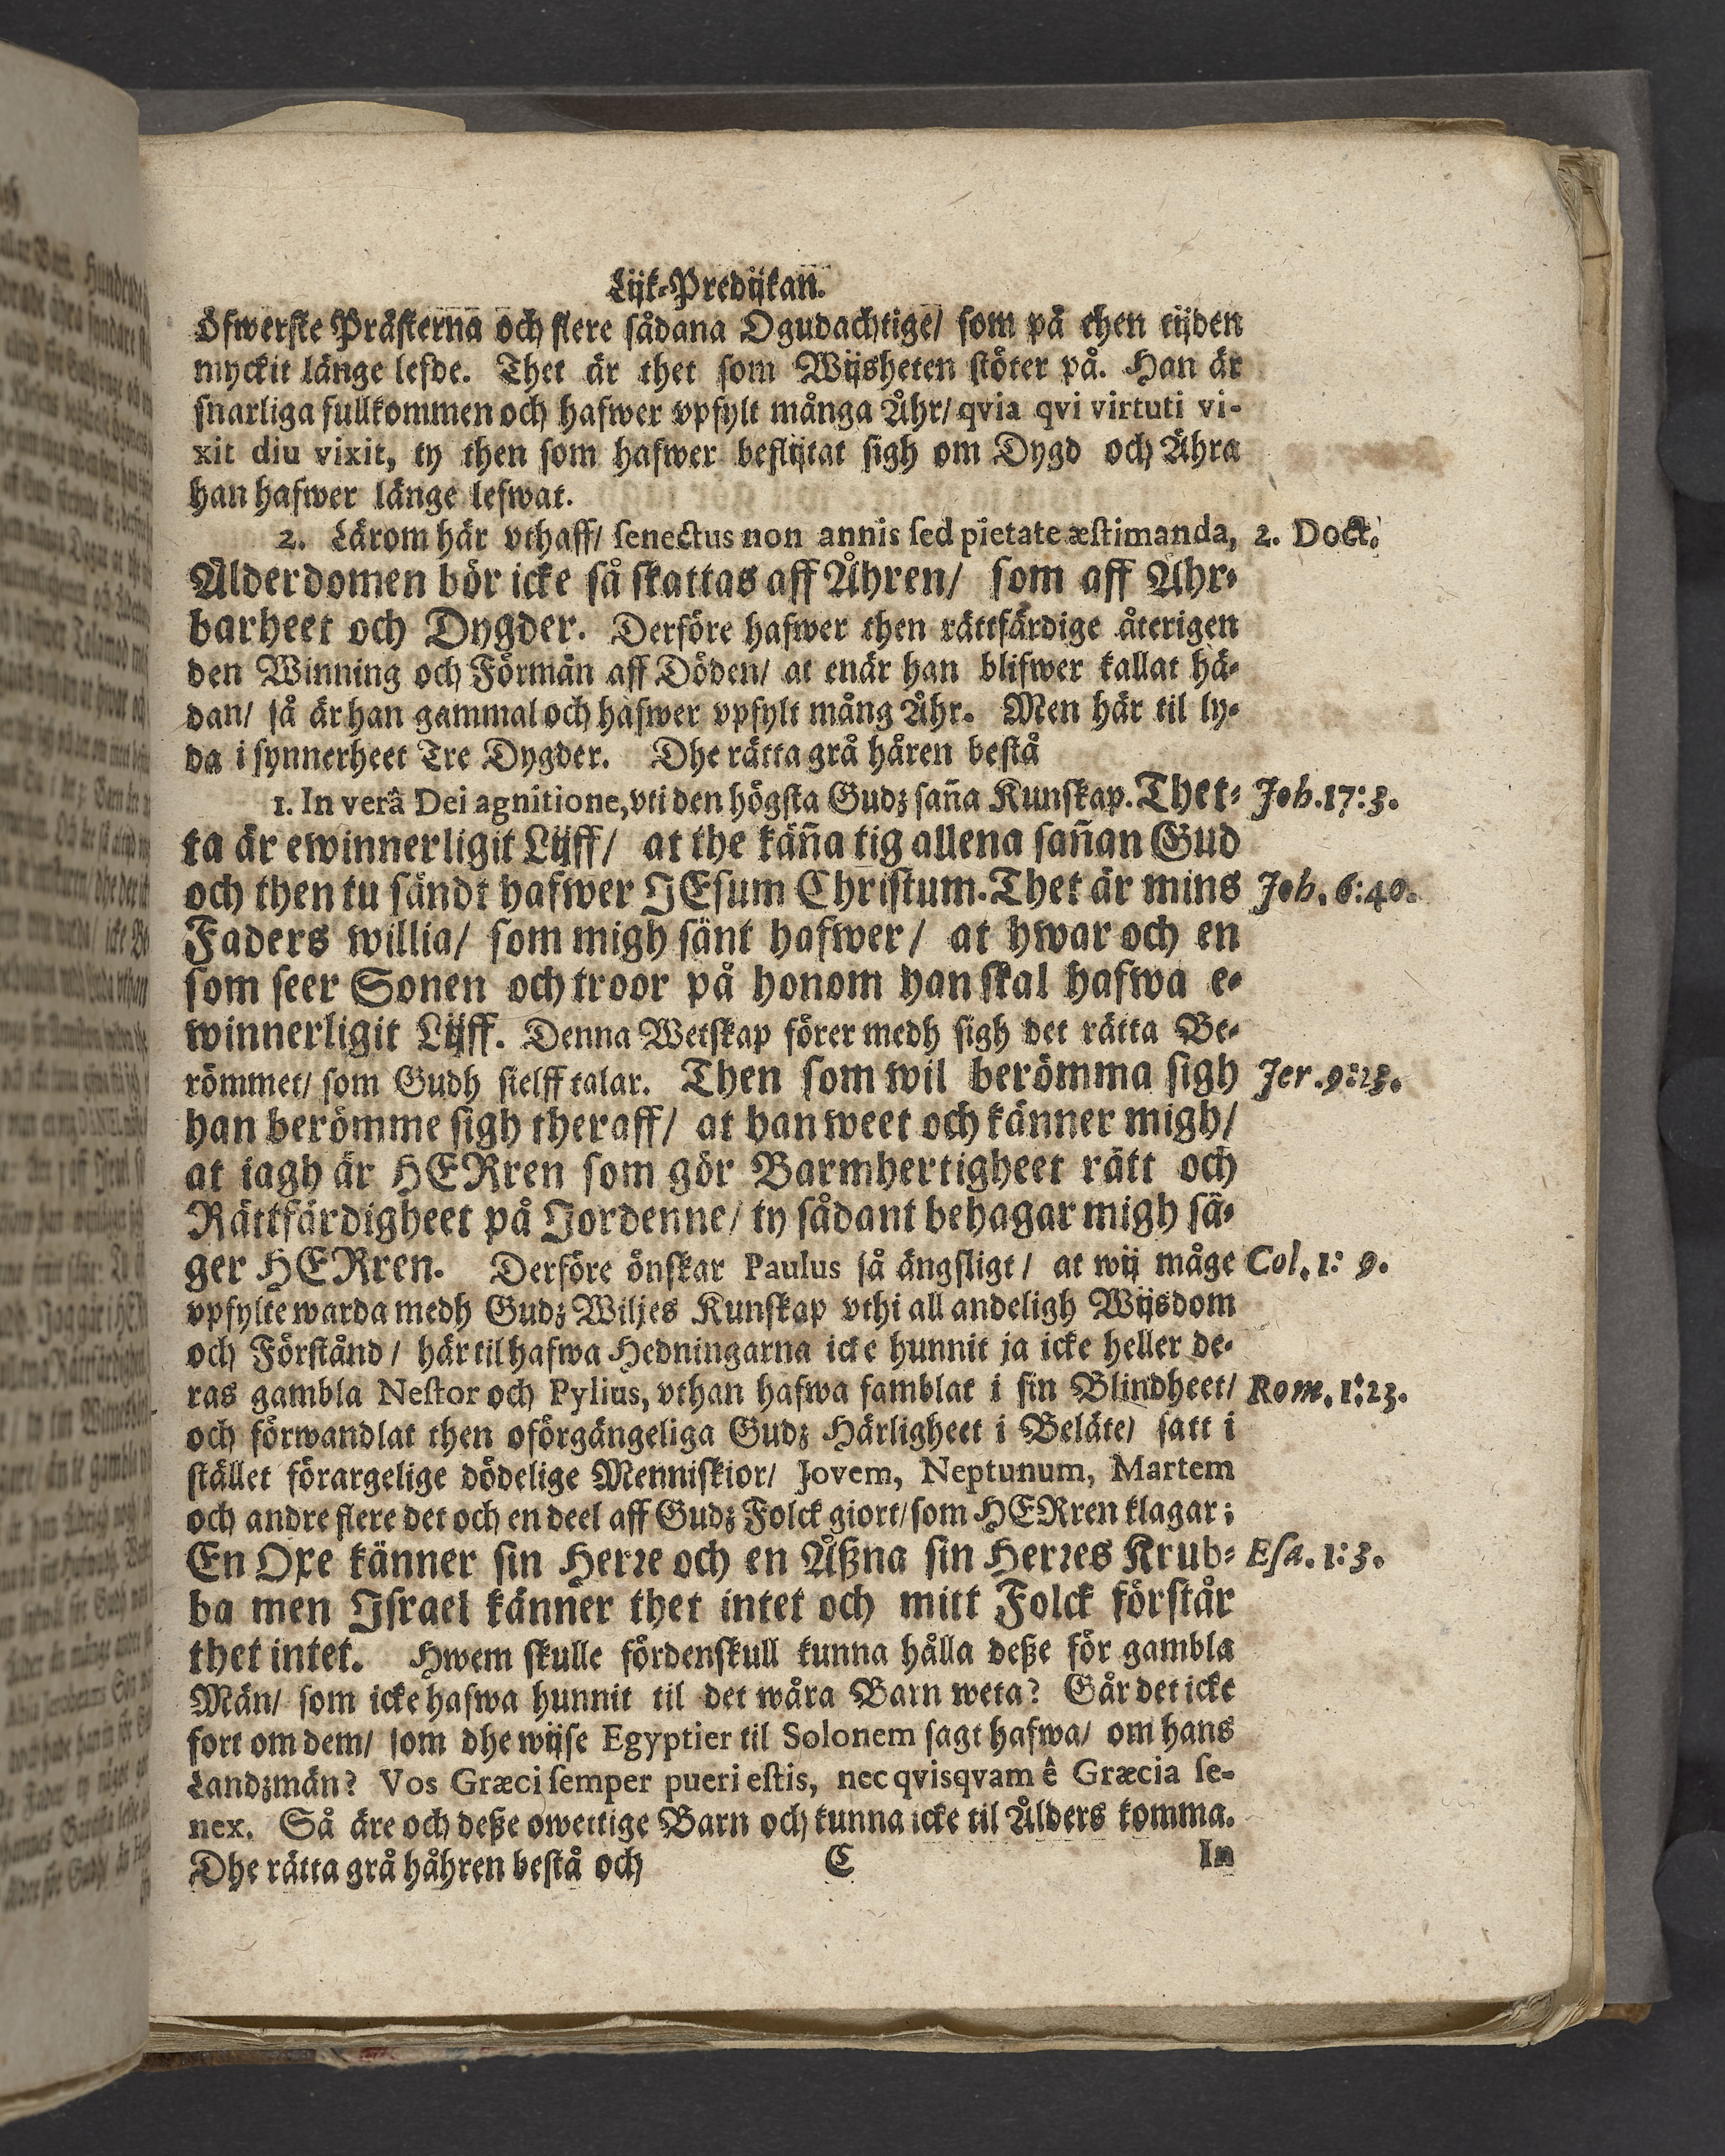 Lijk-Predijkan.
öfwerste Prästerna och flere sådana Ogudachtige/ som på then tijden
myckit länge lefde. Thet är thet som Wijsheten stöter på. Han är
snarliga fullkommen och hafwer vpfylt många Åhr/ qvia qvi virtuti vi-
xit diu vixit, ty then som hafwer beflijtat sigh om Dygd och Ähra
han hafwer länge lefwat.
2. Lärom här vthaff/ senectus non annis sed pietate æstimanda, 2. Doct.
Ålderdomen bör icke så skattas aff Åhren/ som aff Ähr-
barheet och Dygder. Derföre hafwer then rättfärdige återigen
den Winning och Förmån aff Döden/ at enär han blifwer kallat hä-
dan/ så är han gammal och hafwer vpfylt mång Åhr. Men här til ly-
da i synnerheet Tre Dygder. Dhe rätta grå håren bestå
1. In verâ Dei agnitione, vti den högsta Gudz saña Kunskap. Thet- Joh. 17:3.
ta är ewinnerligit Lijff/ at the käña tig allena sañan Gud
och then tu sändt hafwer JEsum Christum. Thet är mins Joh. 6:40.
Faders willia/ som migh sänt hafwer/ at hwar och en
som seer Sonen och troor på honom han skal hafwa e-
winnerligit Lijff. Denna Wetskap förer medh sigh det rätta Be-
römmet/ som Gudh sielff talar. Then som wil berömma sigh Jer. 9:23.
han berömme sigh theraff/ at han weet och känner migh/
at iagh är HERren som gör Barmhertigheet rätt och
Rättfärdigheet på Jordenne/ ty sådant behagar migh sä-
ger HERren. Derföre önskar Paulus så ängsligt/ at wij måge Col. 1: 9.
vpfylte warda medh Gudz Wiljes Kunskap vthi all andeligh Wijsdom
och Förstånd/ här til hafwa Hedningarna icke hunnit ja icke heller de-
ras gambla Nestor och Pylius, vthan hafwa famblat i sin Blindheet/ Rom. 1:23.
och förwandlat then oförgängeliga Gudz Härligheet i Beläte/ satt i
stället förargelige dödelige Menniskior/ Jovem, Neptunum, Martem
och andre flere det och en deel aff Gudz Folck giort/ som HERren klagar;
En Oxe känner sin Herre och en Åßna sin Herres Krub- Esa. 1:3.
ba men Israel känner thet intet och mitt Folck förstår
thet intet. Hwem skulle fördenskull kunna hålla deße för gambla
Män/ som icke hafwa hunnit til det wåra Barn weta? Går det icke
fort om dem/ som dhe wijse Egyptier til Solonem sagt hafwa/ om hans
Landzmän? Vos Græci semper pueri estis, nec qvisqvam ê Græcia se-
nex. Så äre och deße owettige Barn och kunna icke til Ålders komma.
Dhe rätta grå håhren bestå och C In